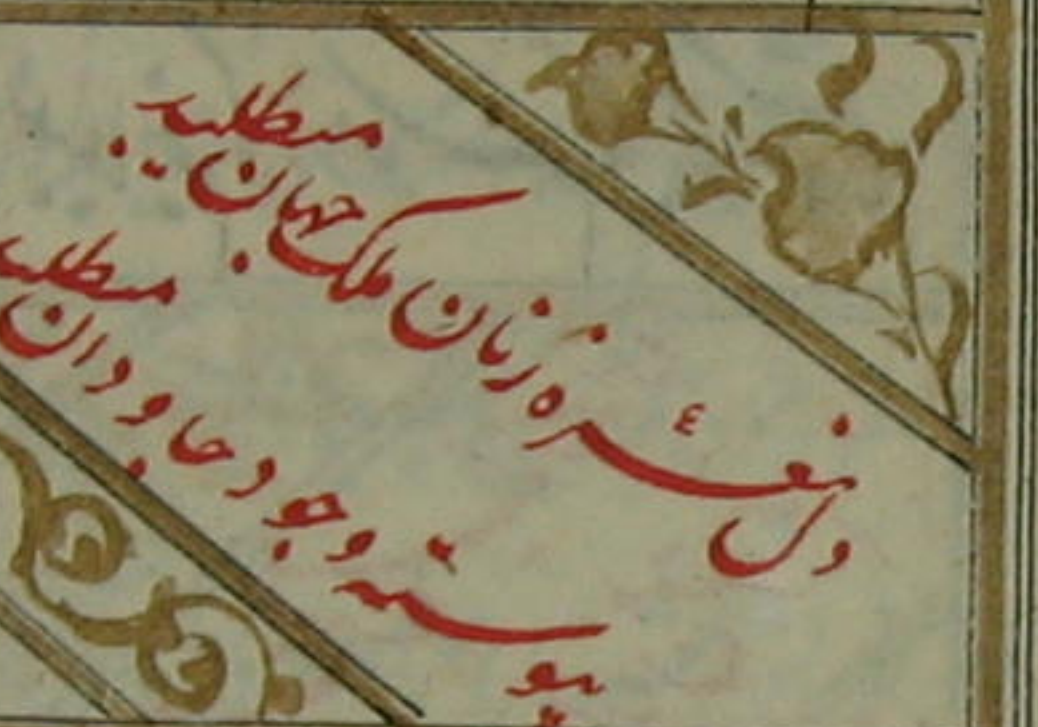 دل نعره زنان ملک جهان میطلبد
پیوسته وجود جاودان میطلبد